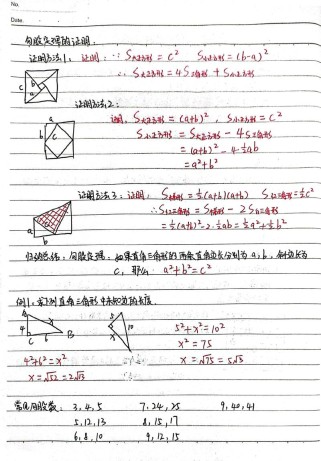 No.
Date.
勾股定理的证明:
证明方法1: 证明: ∵ S大正方形 = c² S小正方形 = (b-a)²
∴ S大正方形 = 4S三角形 + S小正方形
c b a
证明方法2:
证明: S大正方形 = (a+b)², S小正方形 = c²
S小正方形 = S大正方形 - 4S三角形
= (a+b)² - 4·½ab
= a²+b²
a b c
证明方法3: 证明: S梯形 = ½(a+b)(a+b) S三角形 = ½c²
∴ S三角形 = S梯形 - 2S三角形
= ½(a+b)² - 2·½ab = ½a²+½b²
a b
归纳总结: 勾股定理: 如果直角三角形的两条直角边长分别为 a, b, 斜边长为
c, 那么 a²+b²=c²
例1: 求下列直角三角形中未知边的长度.
A 4 x C 6 B
5 10 x
5²+x²=10²
x²=75
4²+6²=x² x=√75=5√3
x=√52=2√13
常见勾股数: 3,4,5 7,24,25 9,40,41
5,12,13 8,15,17
6,8,10 9,12,15